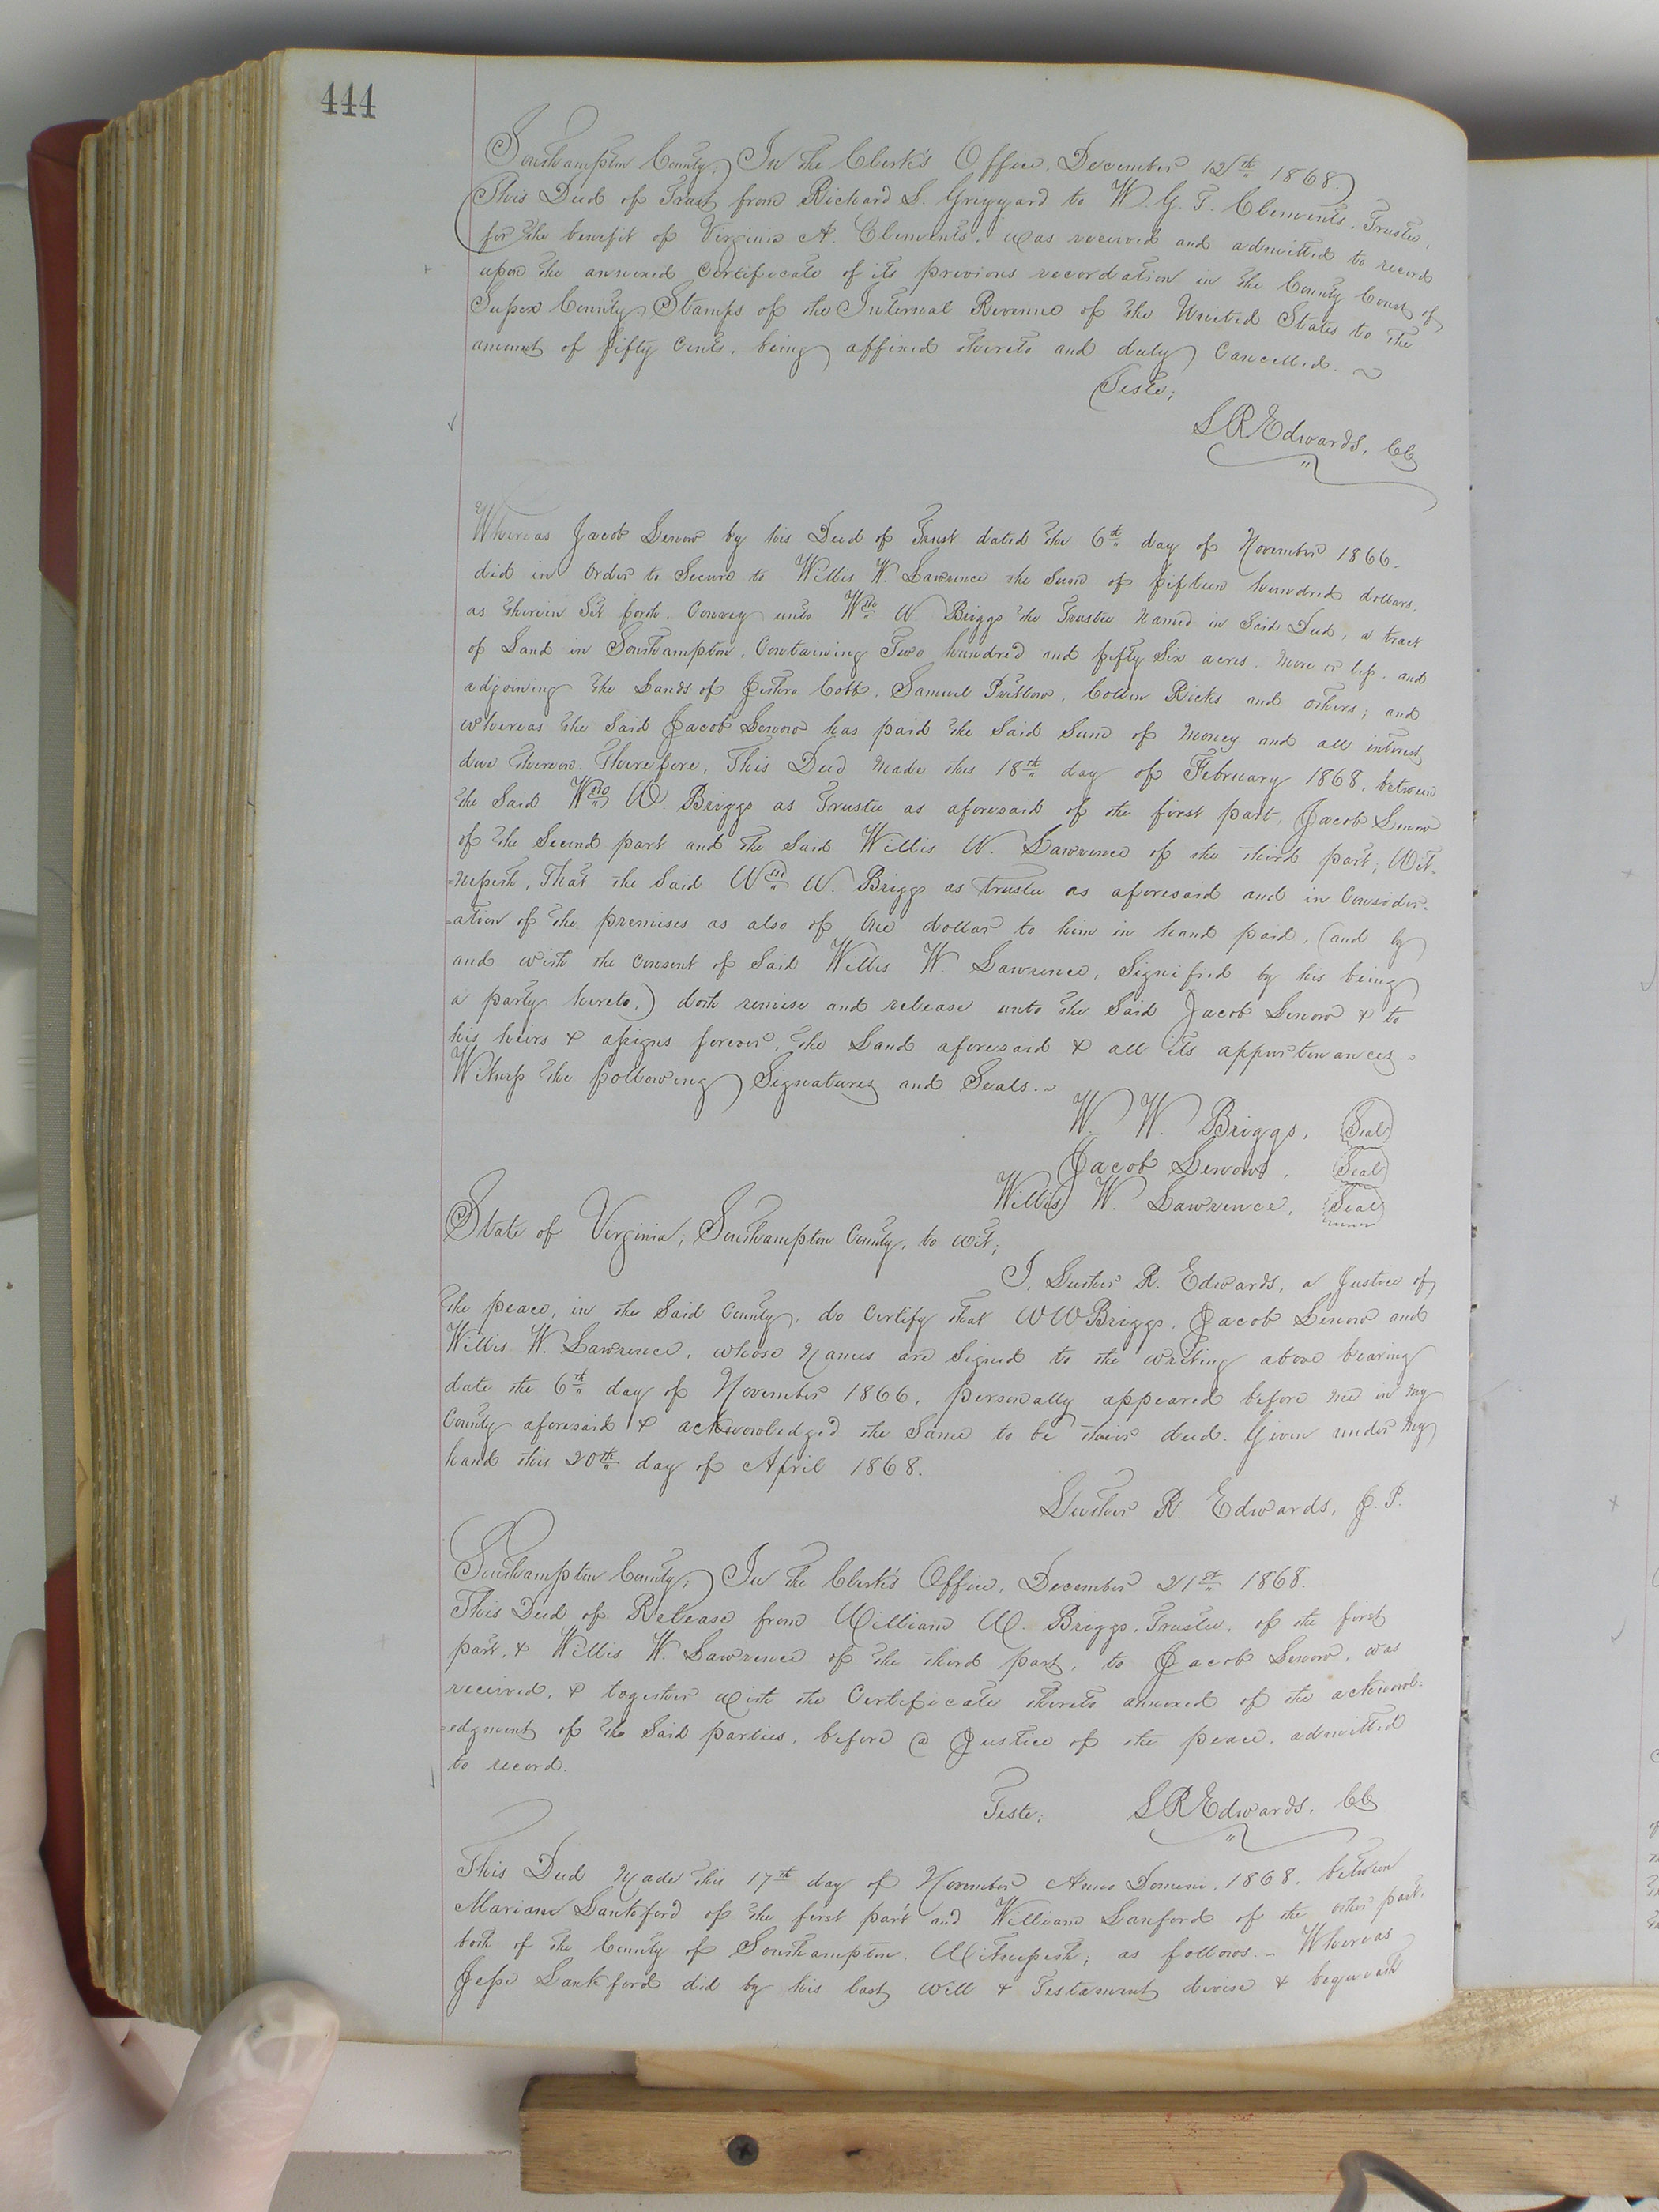 444
Southampton County, In the Clerk's Office, December 12th 1868.
This Deed of Trust from Richard S. Griggard to W. G. T. Clements, Trustee,
for the benefit of Virginia A. Clements, was received and admitted to record
upon the annexed Certificate of its previous recordation in the County Court of
Sussex County, Stamps of the Internal Revenue of the United States to the
amount of fifty Cents, being affixed thereto and duly Cancelled.
Teste;
L R Edwards, CC
Whereas Jacob Lenow by his Deed of Trust dated the 6th day of November 1866,
did in Order to Secure to Willis W. Lawrence the Sum of fifteen hundred dollars,
as therein Set forth, Convey unto Wm W. Briggs the Trustee Named in Said Deed, a tract
of Land in Southampton, Containing Two hundred and fifty Six acres, More or less, and
adjoining the Lands of Jethro Cobb, Samuel Pretlow, Collin Ricks and others; and
whereas the Said Jacob Lenow has paid the Said Sum of Money and all interest
due thereon. Therefore, This Deed Made this 18th day of February 1868, between
the Said Wm W. Briggs as Trustee as aforesaid of the first part, Jacob Lenow
of the Second part and the Said Willis W. Lawrence of the third part; Wit-
=nesseth, That the Said Wm W. Briggs as trustee as aforesaid and in Consider-
=ation of the premises as also of One dollar to him in hand paid, (and by
and with the Consent of Said Willis W. Lawrence, Signified by his being
a party hereto,) doth remise and release unto the Said Jacob Lenow & to
his heirs & assigns forever, the Land aforesaid & all its appurtenances.
Witness the following Signatures and Seals.
W. W. Briggs, Seal
Jacob Lenow, Seal
Willis W. Lawrence, Seal
State of Virginia, Southampton County, to wit;
I, Luther R. Edwards, a Justice of
the peace, in the Said County, do Certify that W W Briggs, Jacob Lenow and
Willis W. Lawrence, whose Names are Signed to the writing above bearing
date the 6th day of November 1866, personally appeared before me in my
County aforesaid & acknowledged the Same to be their deed. Given under my
hand this 20th day of April 1868.
Luther R. Edwards, J. P.
Southampton County, In the Clerk's Office, December 21st 1868.
This Deed of Release from William W. Briggs, Trustee, of the first
part, & Willis W. Lawrence of the third part, to Jacob Lenow, was
received, & together with the Certificate thereto annexed of the acknowl-
=edgment of the Said parties, before a Justice of the peace, admitted
to record.
Teste; L R Edwards, CC
This Deed Made this 17th day of November Anno Domini, 1868, between
Mariam Lankford of the first part and William Lanford of the other part,
both of the County of Southampton, Witnesseth; as follows. – Whereas
Jesse Lankford did by his last Will & Testament devise & bequeath